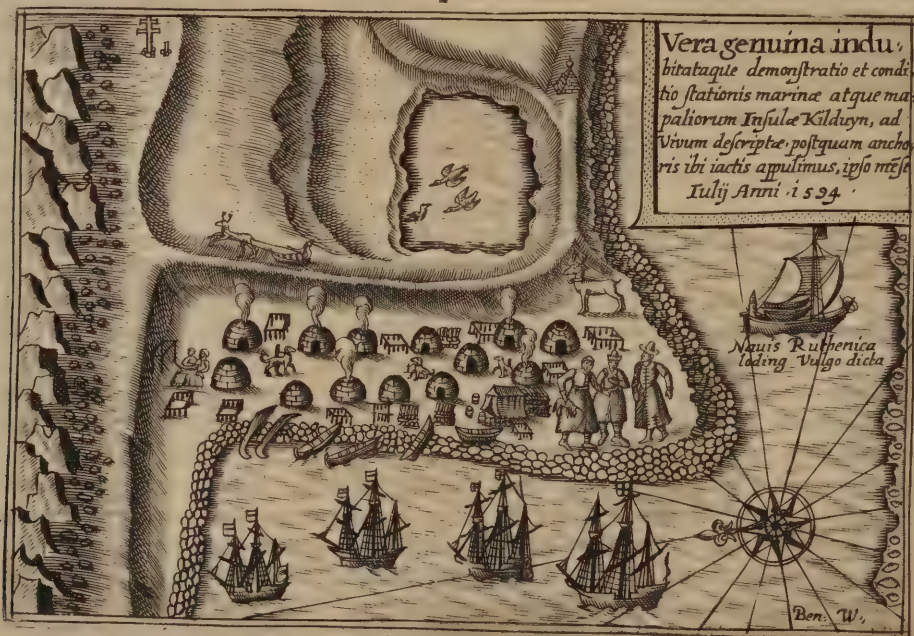 Vera genuina indu:
bitataque demonſtratio et condi
tio ſtationis marinæ atque ma
paliorum Inſulæ Kilduyn, ad
Vivum deſcriptæ, poſtquam ancho,
ris ibi iactis appulimus, ipſo mẽſe
Iulij Anni · 1594 ·
Nauis Ruthenica
lading Vulgo dicta
Ben: W: